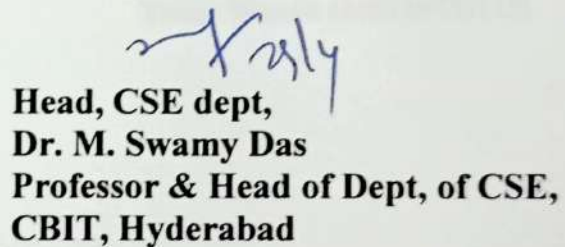 Head, CSE dept,
Dr. M. Swamy Das
Professor & Head of Dept, of CSE,
CBIT, Hyderabad